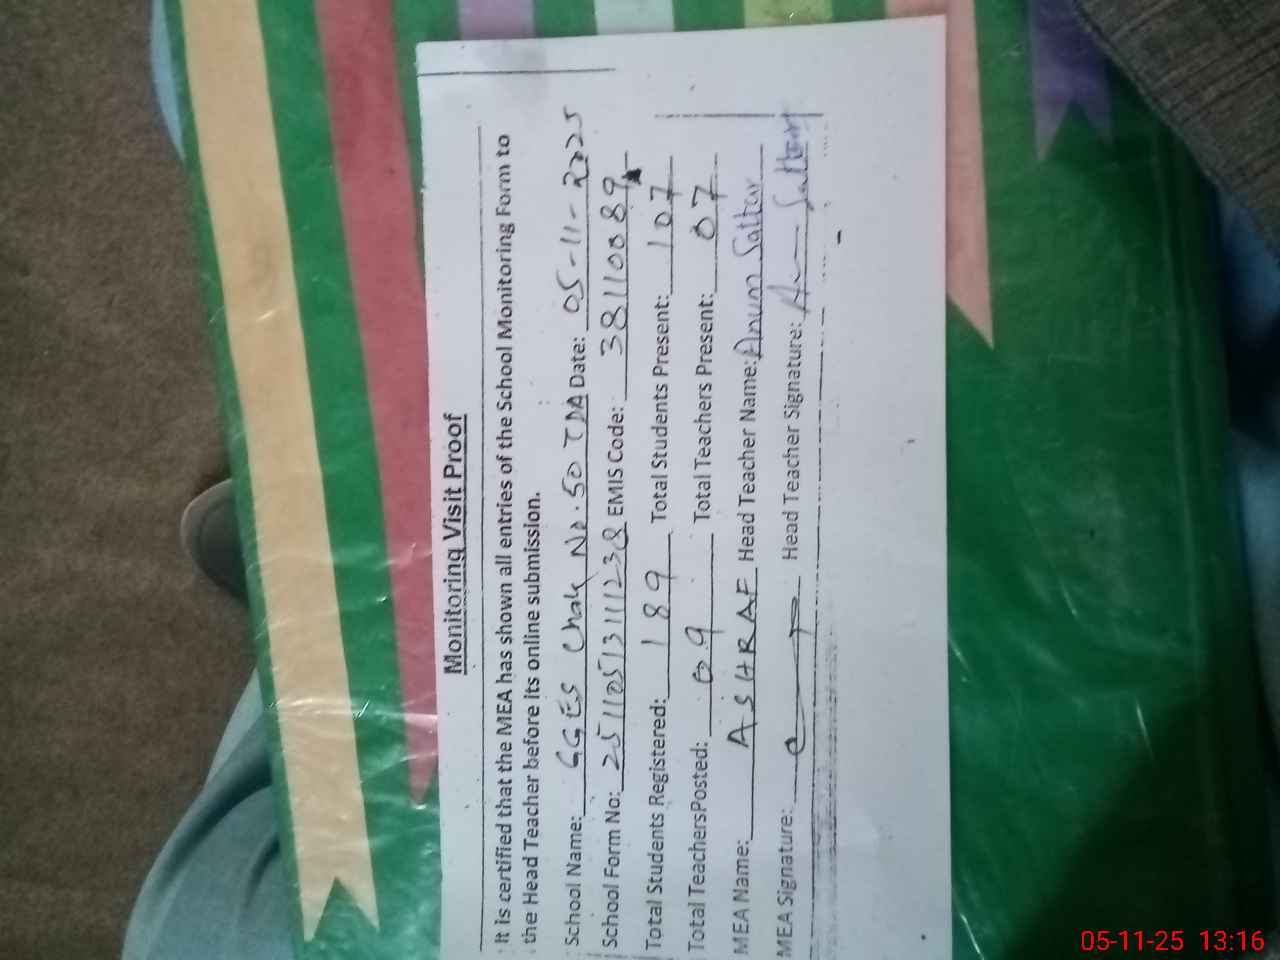 Monitoring Visit Proof
It is certified that the MEA has shown all entries of the School Monitoring Form to
the Head Teacher before its online submission.
School Name: GGES Chak No. 50 TDA Date: 05-11-2025
School Form No: 25110513111238 EMIS Code: 38110089
Total Students Registered: 189 Total Students Present: 107
Total TeachersPosted: 09 Total Teachers Present: 07
MEA Name: ASHRAF Head Teacher Name: Anum Sattar
MEA Signature: Head Teacher Signature:
05-11-25 13:16